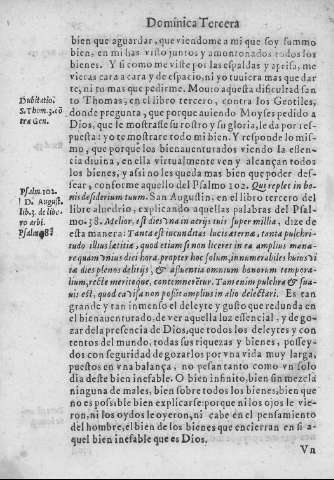 Dominica Tercera
bien que aguardar, que viendome a mi que soy summo
bien, en mi has visto juntos y amontonados todos los
bienes. Y si como me viste por las espaldas y aprisa, me
vieras cara a cara y de espacio, ni yo tuuiera mas que dar
te, ni tu mas que pedirme. Mouio aquesta dificultad san
Dubitatio.
S. Thom. 3. cō
tra Gen.
to Thomas, en el libro tercero, contra los Gentiles,
donde pregunta, que porque auiendo Moyses pedido a
Dios, que le mostrasse su rostro y su gloria, le da por res-
puesta: yo te mostrare todo mi bien. Y responde lo mis-
mo, que porque los bienauenturados viendo la essen-
cia diuina, en ella virtualmente ven y alcançan todos
los bienes, y assi no les queda mas bien que poder des-
Psalm. 102.
D. August.
lib. 3. de libe-
ro arbi.
Psalm. 83
sear, conforme aquello del Psalmo 102. Qui replet in bo-
nis desiderium tuum. San Augustin, en el libro tercero del
libre aluedrio, explicando aquellas palabras del Psal-
mo. 78. Melior est dies vna in atrijs tuis super millia, dize de
esta manera: Tanta est iucunditas lucis æternæ, tanta pulchri-
tudo illius lætitiæ, quod etiam si non liceret in ea amplius mane-
re quam vnius diei hora, propter hoc solum, innumerabiles huius vi
tæ dies plenos delitijs, & afluentia omnium bonorum tempora-
lium, recte meritoque, contemneretur. Tam enim pulchra & sua-
uis est, quod ea visa non possit amplius in alio delectari. Es tan
grande y tan inmenso el deleyte y gusto que redunda en
el bienauenturado, de ver aquella luz essencial, y de go-
zar dela presencia de Dios, que todos los deleytes y con
tentos del mundo, todas sus riquezas y bienes, possey-
dos con seguridad de gozarlos por vna vida muy larga,
puestos en vna balança, no pesan tanto como vn solo
dia deste bien inefable. O bien infinito, bien sin mezcla
ninguna de males, bien sobre todos los bienes, bien que
no es possible bien explicarse: porque ni los ojos le vie-
ron, ni los oydos le oyeron, ni cabe en el pensamiento
del hombre, el bien de los bienes que encierran en si a-
quel bien inefable que es Dios.
Vn